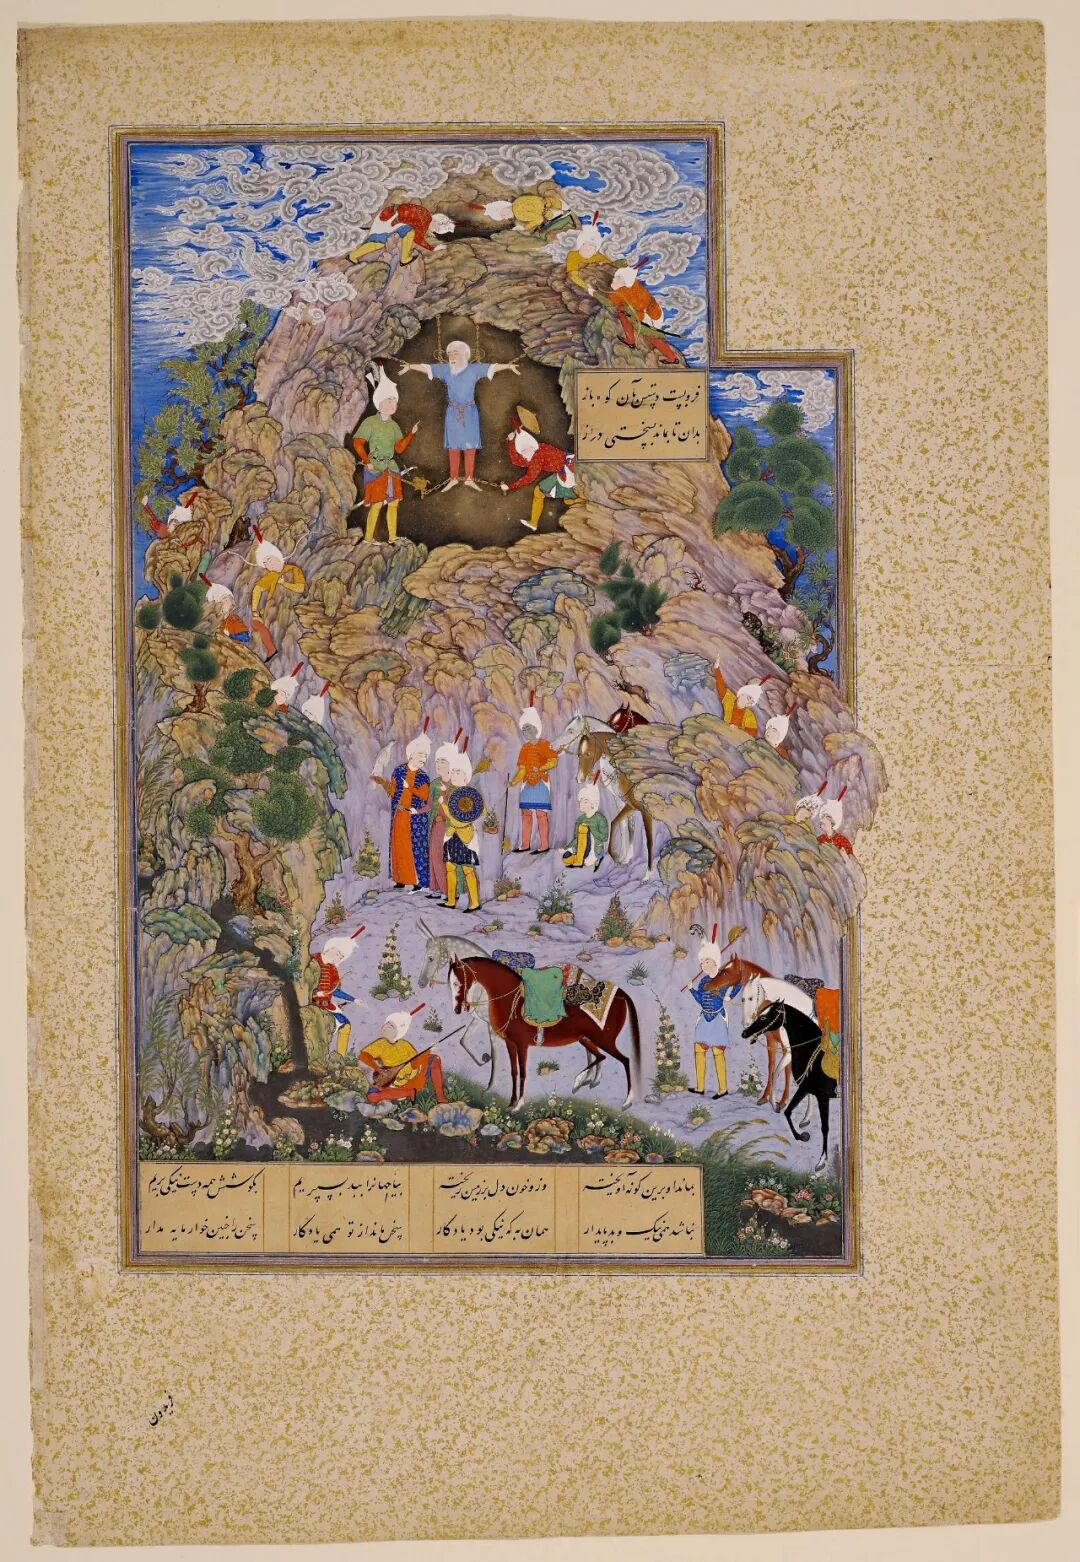 فروبست دستش بآن کوه باز
بدان تا بماند بسختی دراز
بماند او برین گونه آویخته
وزو خون دل بر زمین ریخته
بیا تا جهانرا ببد نسپریم
بکوشش همه دست نیکی بریم
نباشد همی نیک و بد پایدار
همان به که نیکی بود یادگار
سخن ماند از تو همی یادگار
سخن را چنین خوار مایه مدار
فریدون